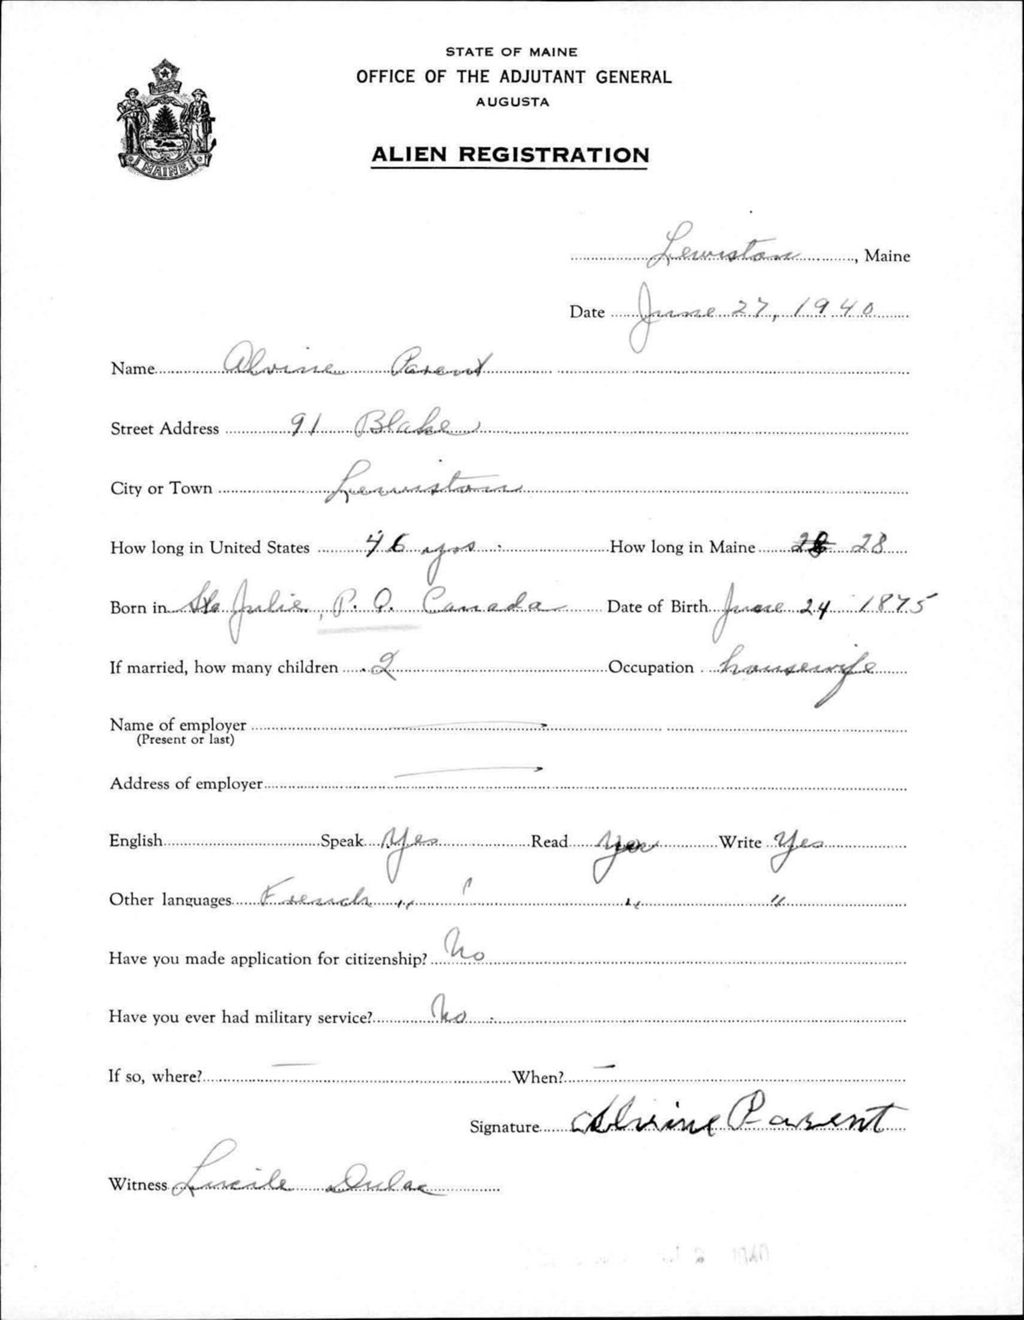 STATE OF MAINE
OFFICE OF THE ADJUTANT GENERAL
AUGUSTA
MAINE
ALIEN REGISTRATION
Lewiston, Maine
Date June 27, 1940
Name Alvine Parent
Street Address 91 Blake
City or Town Lewiston
How long in United States 46 yrs. How long in Maine 28
Born in Ste Julie, P.Q. Canada Date of Birth June 24 1875
If married, how many children 2 Occupation housewife
Name of employer
(Present or last)
Address of employer
English Speak Yes Read Yes Write Yes
Other languages French " " "
Have you made application for citizenship? No
Have you ever had military service? No
If so, where? — When? —
Signature Alvine Parent
Witness Lucile Dulac